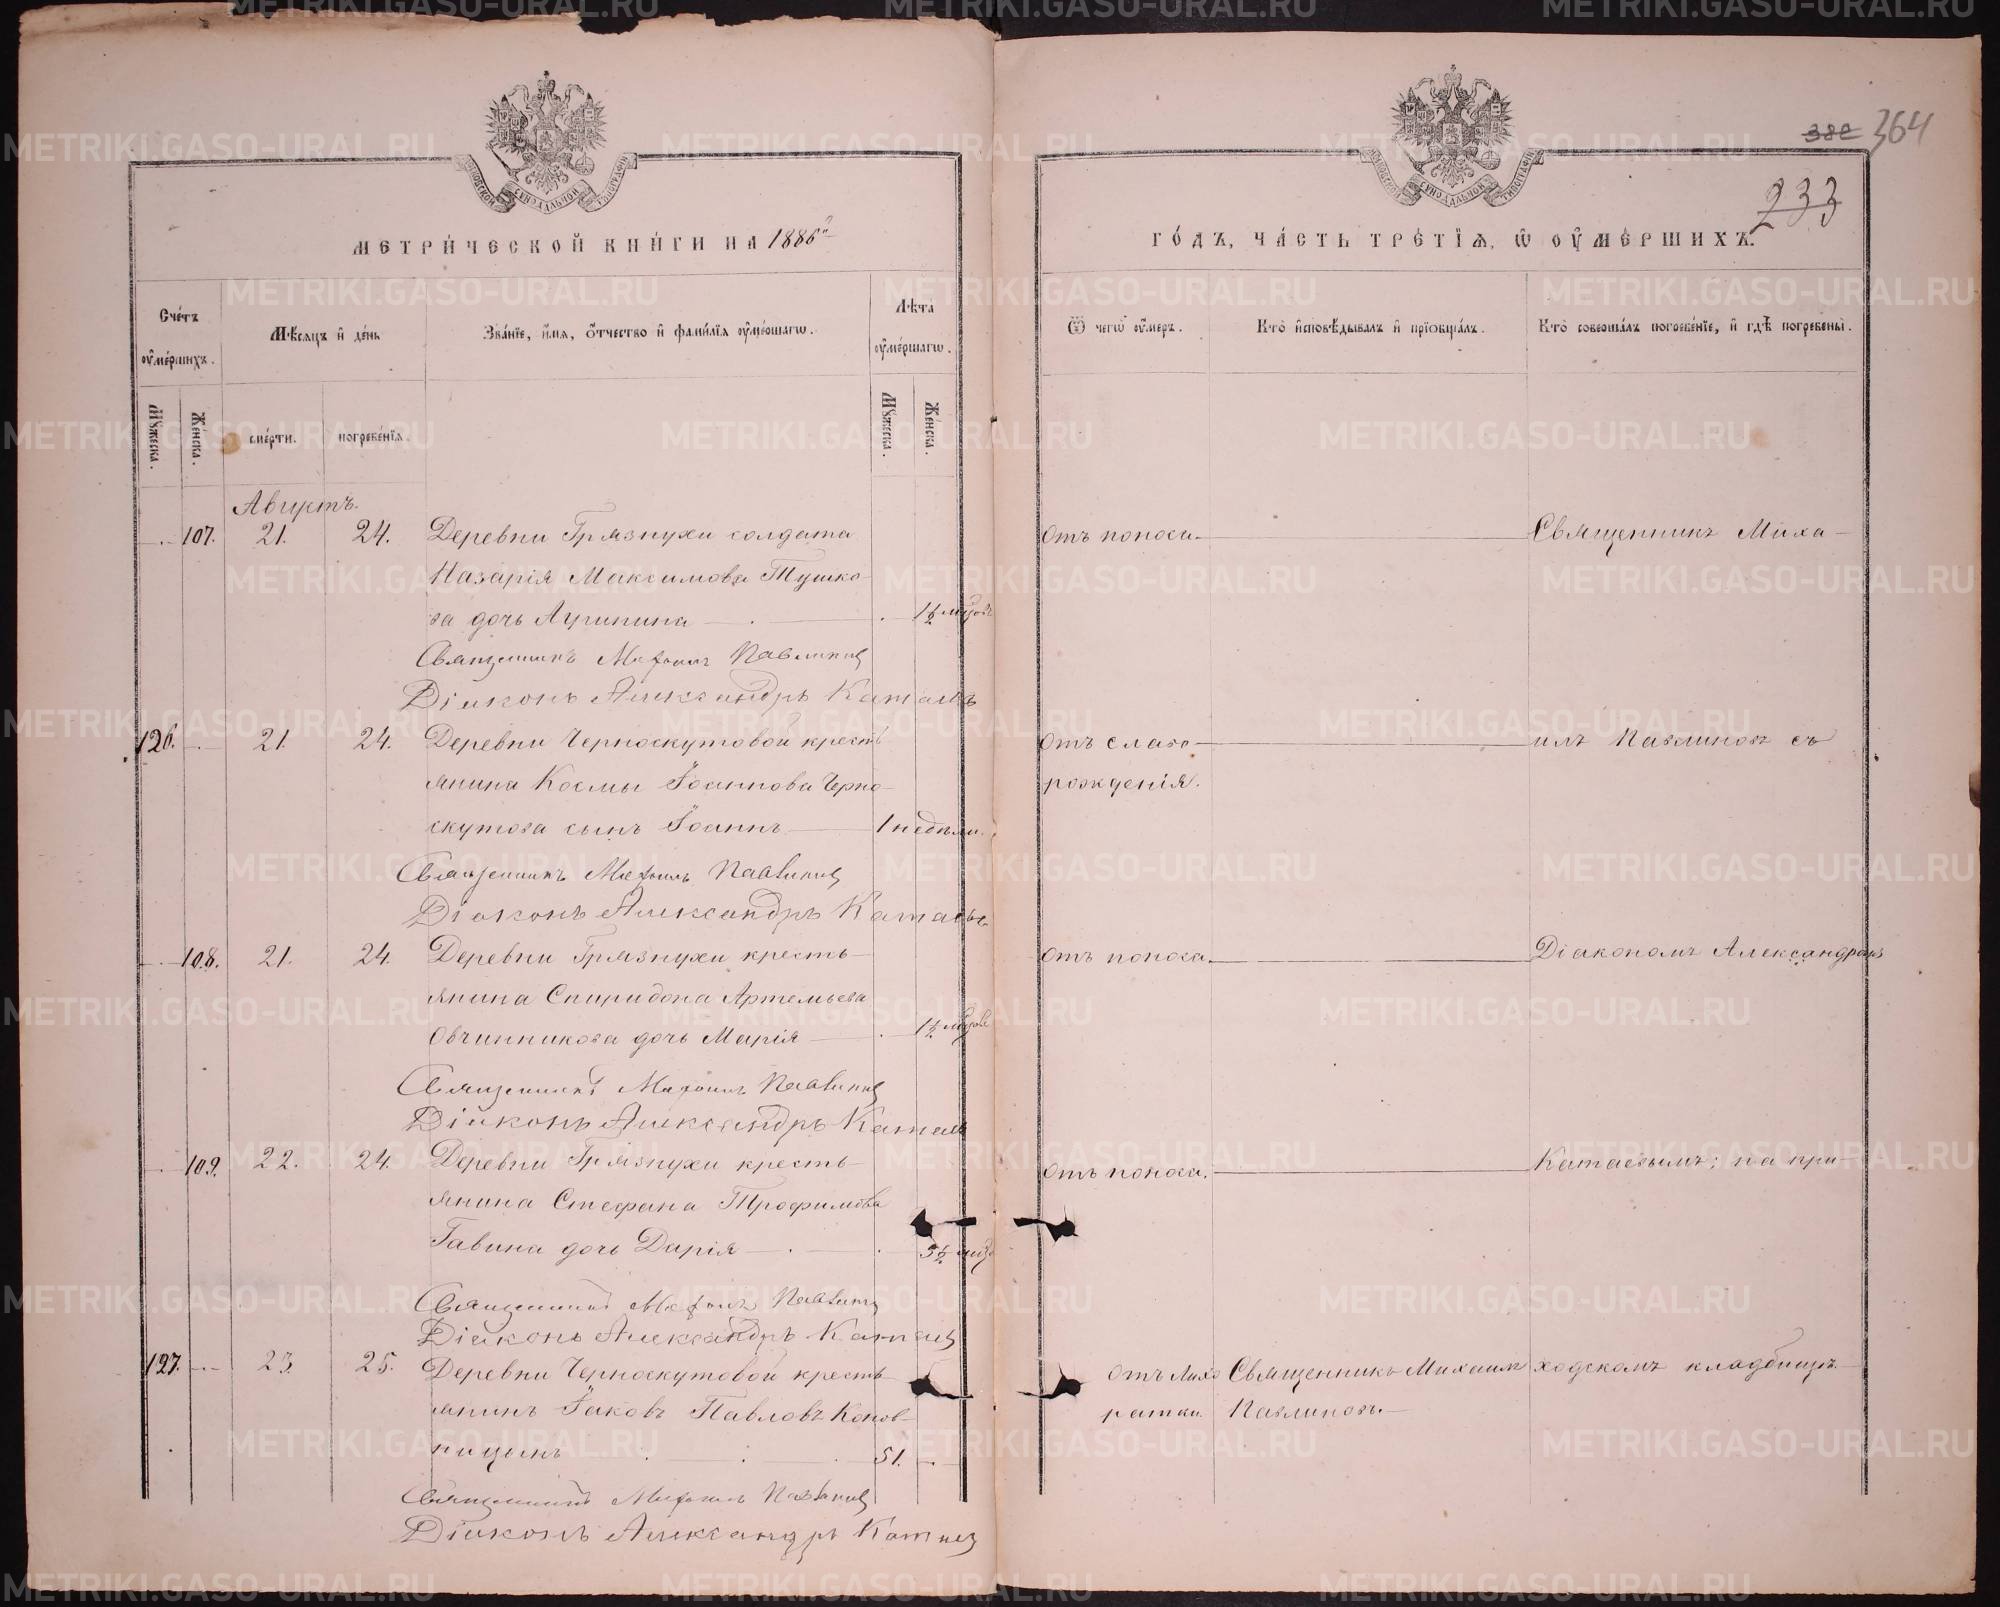 382 364
233
МЕТРИ́ЧЕСКОЙ КНИ́ГИ НА 1886й
Сче́тъ оу҆ме́ршихъ.
Мѣ́сяцъ и҆ де́нь
Зва́нїе, и҆́мя, ѻ҆́тчество и҆ фами́лїя оу҆ме́ршагѡ.
Лѣ́та оу҆ме́ршагѡ.
Мꙋ́жеска.
Же́нска.
сме́рти.
погребе́нїя.
Мꙋ́жеска.
Же́нска.
Августъ.
107. 21. 24. Деревни Грязнухи солдата
Назарія Максимова Тушко-
ва дочь Агрипина 1½ мѣсяц
Священникъ Михаилъ Павлиновъ
Діаконъ Александръ Катаевъ
126. 21. 24. Деревни Черноскутовой кресть
янина Космы Іоаннова Черно-
скутова сынъ Іоаннъ 1 недѣли.
Священникъ Михаилъ Павлиновъ
Діаконъ Александръ Катаевъ
108. 21. 24. Деревни Грязнухи кресть-
янина Спиридона Артемьева
Овчинникова дочь Марія 1½
Священникъ Михаилъ Павлиновъ
Діаконъ Александръ Катаевъ
109. 22. 24. Деревни Грязнухи кресть-
янина Стефана Трофимова
Гавина дочь Дарія
Священникъ Михаилъ Павлиновъ
Діаконъ Александръ Катаевъ
127. 23. 25. Деревни Черноскутовой кресть-
янинъ Іаковъ Павловъ Конов-
ницынъ 51.
Священникъ Михаилъ Павлиновъ
Діаконъ Александръ Катаевъ
ГО́ДЪ, ЧА́СТЬ ТРЕ́ТЇЯ, Ѡ҆ ОУ҆МЕ́РШИХЪ.
Ѿ чегѡ̀ оу҆́меръ.
Кто̀ и҆сповѣ́дывалъ и҆ прїѻбща́лъ.
Кто̀ соверша́лъ погребе́нїе, и҆ гдѣ̀ погребены̀.
Отъ поноса. Священникъ Миха-
Отъ слабо- илъ Павлиновъ съ
рожденія.
Отъ поноса. Діакономъ Александромъ
Отъ поноса. Катаевымъ; на при-
Отъ лихо Священникъ Михаилъ ходскомъ кладбищѣ.
радки. Павлиновъ.
METRIKI.GASO-URAL.RU